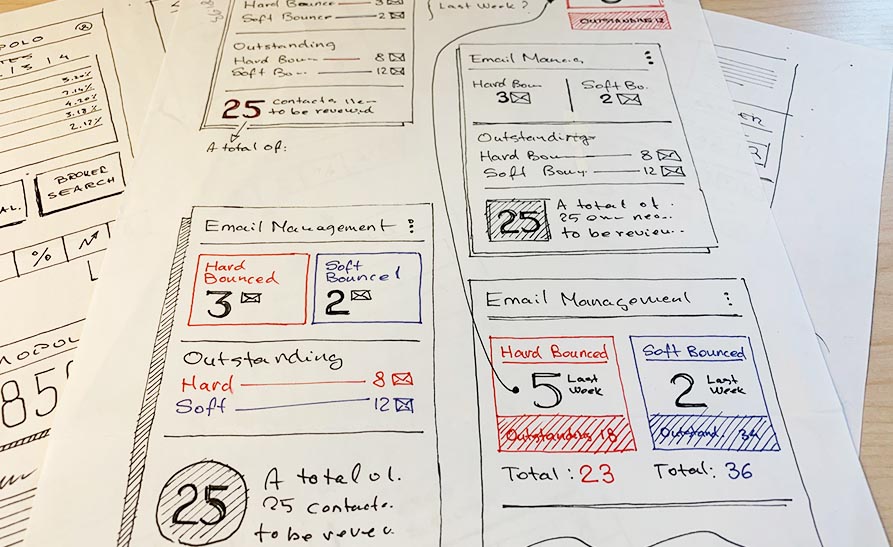 Hard Bounce 3
Soft Bounce 2
Outstanding
Hard Boun 8
Soft Bo.. 12
25 contacts
to be reviewed
A total of:
Last Week?
OUTSTANDING 12
Email Manag
Hard Boun
3
Soft Bo.
2
Outstanding
Hard Boun 8
Soft Boun 12
25
A total of.
25
to be review..
Email Management
Hard
Bounced
3
Soft
Bounced
2
Outstanding
Hard 8
Soft 12
25
A total of.
25 contacts.
to be
Email Management
Hard Bounced
5 Last
Week
Outstanding 18
Total: 23
Soft Bounced
2 Last
Week
Outstand. 34
Total: 36
POLO
1 3 1 4
3.20%
7.14%
4.20%
3.18%
2.12%
AL.
BROKER
SEARCH
%
L
MOPOL
85